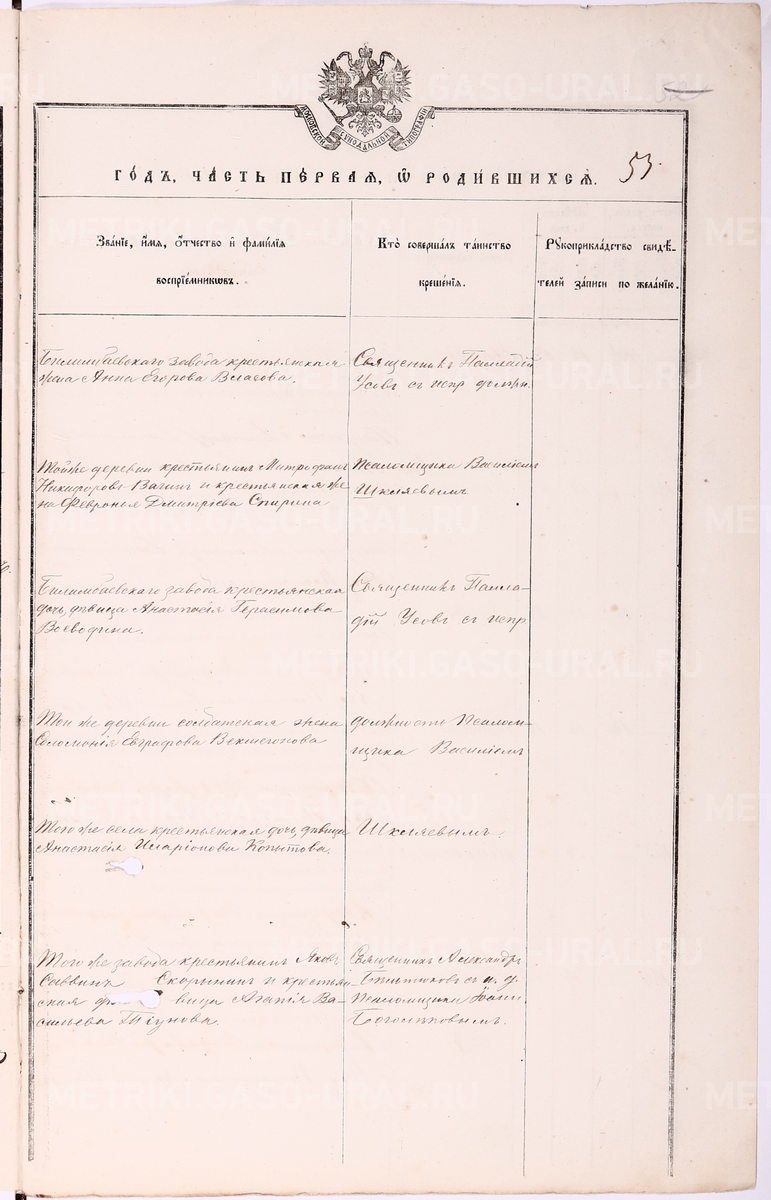 52
МОСКОВСКОЙ СѴНОДАЛЬНОЙ ТИПОГРАФІИ
ГО́ДЪ, ЧА́СТЬ ПЕ́РВАЯ, Ѿ РОДИ́ВШИХСѦ.
53.
Зва́нїе, и҆́мя, ѻ҆́тчество и҆ фами́лїя
воспрїе́мникѡвъ.
Кто̀ соверша́лъ та́инство
креще́нїя.
Рꙋкоприкла́дство свидѣ́-
телей за́писи по жела́нїю.
Билимбаевскаго завода крестьянская
жена Анна Егорова Власова.
Священникъ Палладій
Усовъ съ испр должн.
Той же деревни крестьянинъ Митрофанъ
Никифоровъ Вагинъ и крестьянская же
на Февронья Дмитріева Спирина
Псаломщика Василіемъ
Шкляевымъ
Билимбаевскаго завода крестьянская
дочь, дѣвица Анастасія Герасимова
Воеводина.
Священникъ Палла-
дій Усовъ съ испр
Той же деревни солдатская жена
Соломонія Евграфова Векшегонова
должность Псалом-
щика Василіемъ
Того же села крестьянская дочь, дѣвица
Анастасія Иларіонова Копытова.
Шкляевымъ.
Того же завода крестьянинъ Яковъ
Саввинъ Скорынинъ и крестьян
ская вица Агапія Ва-
сильева Тіунова.
Священникъ Александръ
съ и. д.
Псаломщика Іоанн
Боголѣповымъ.
METRIKI.GASO-URAL.RU